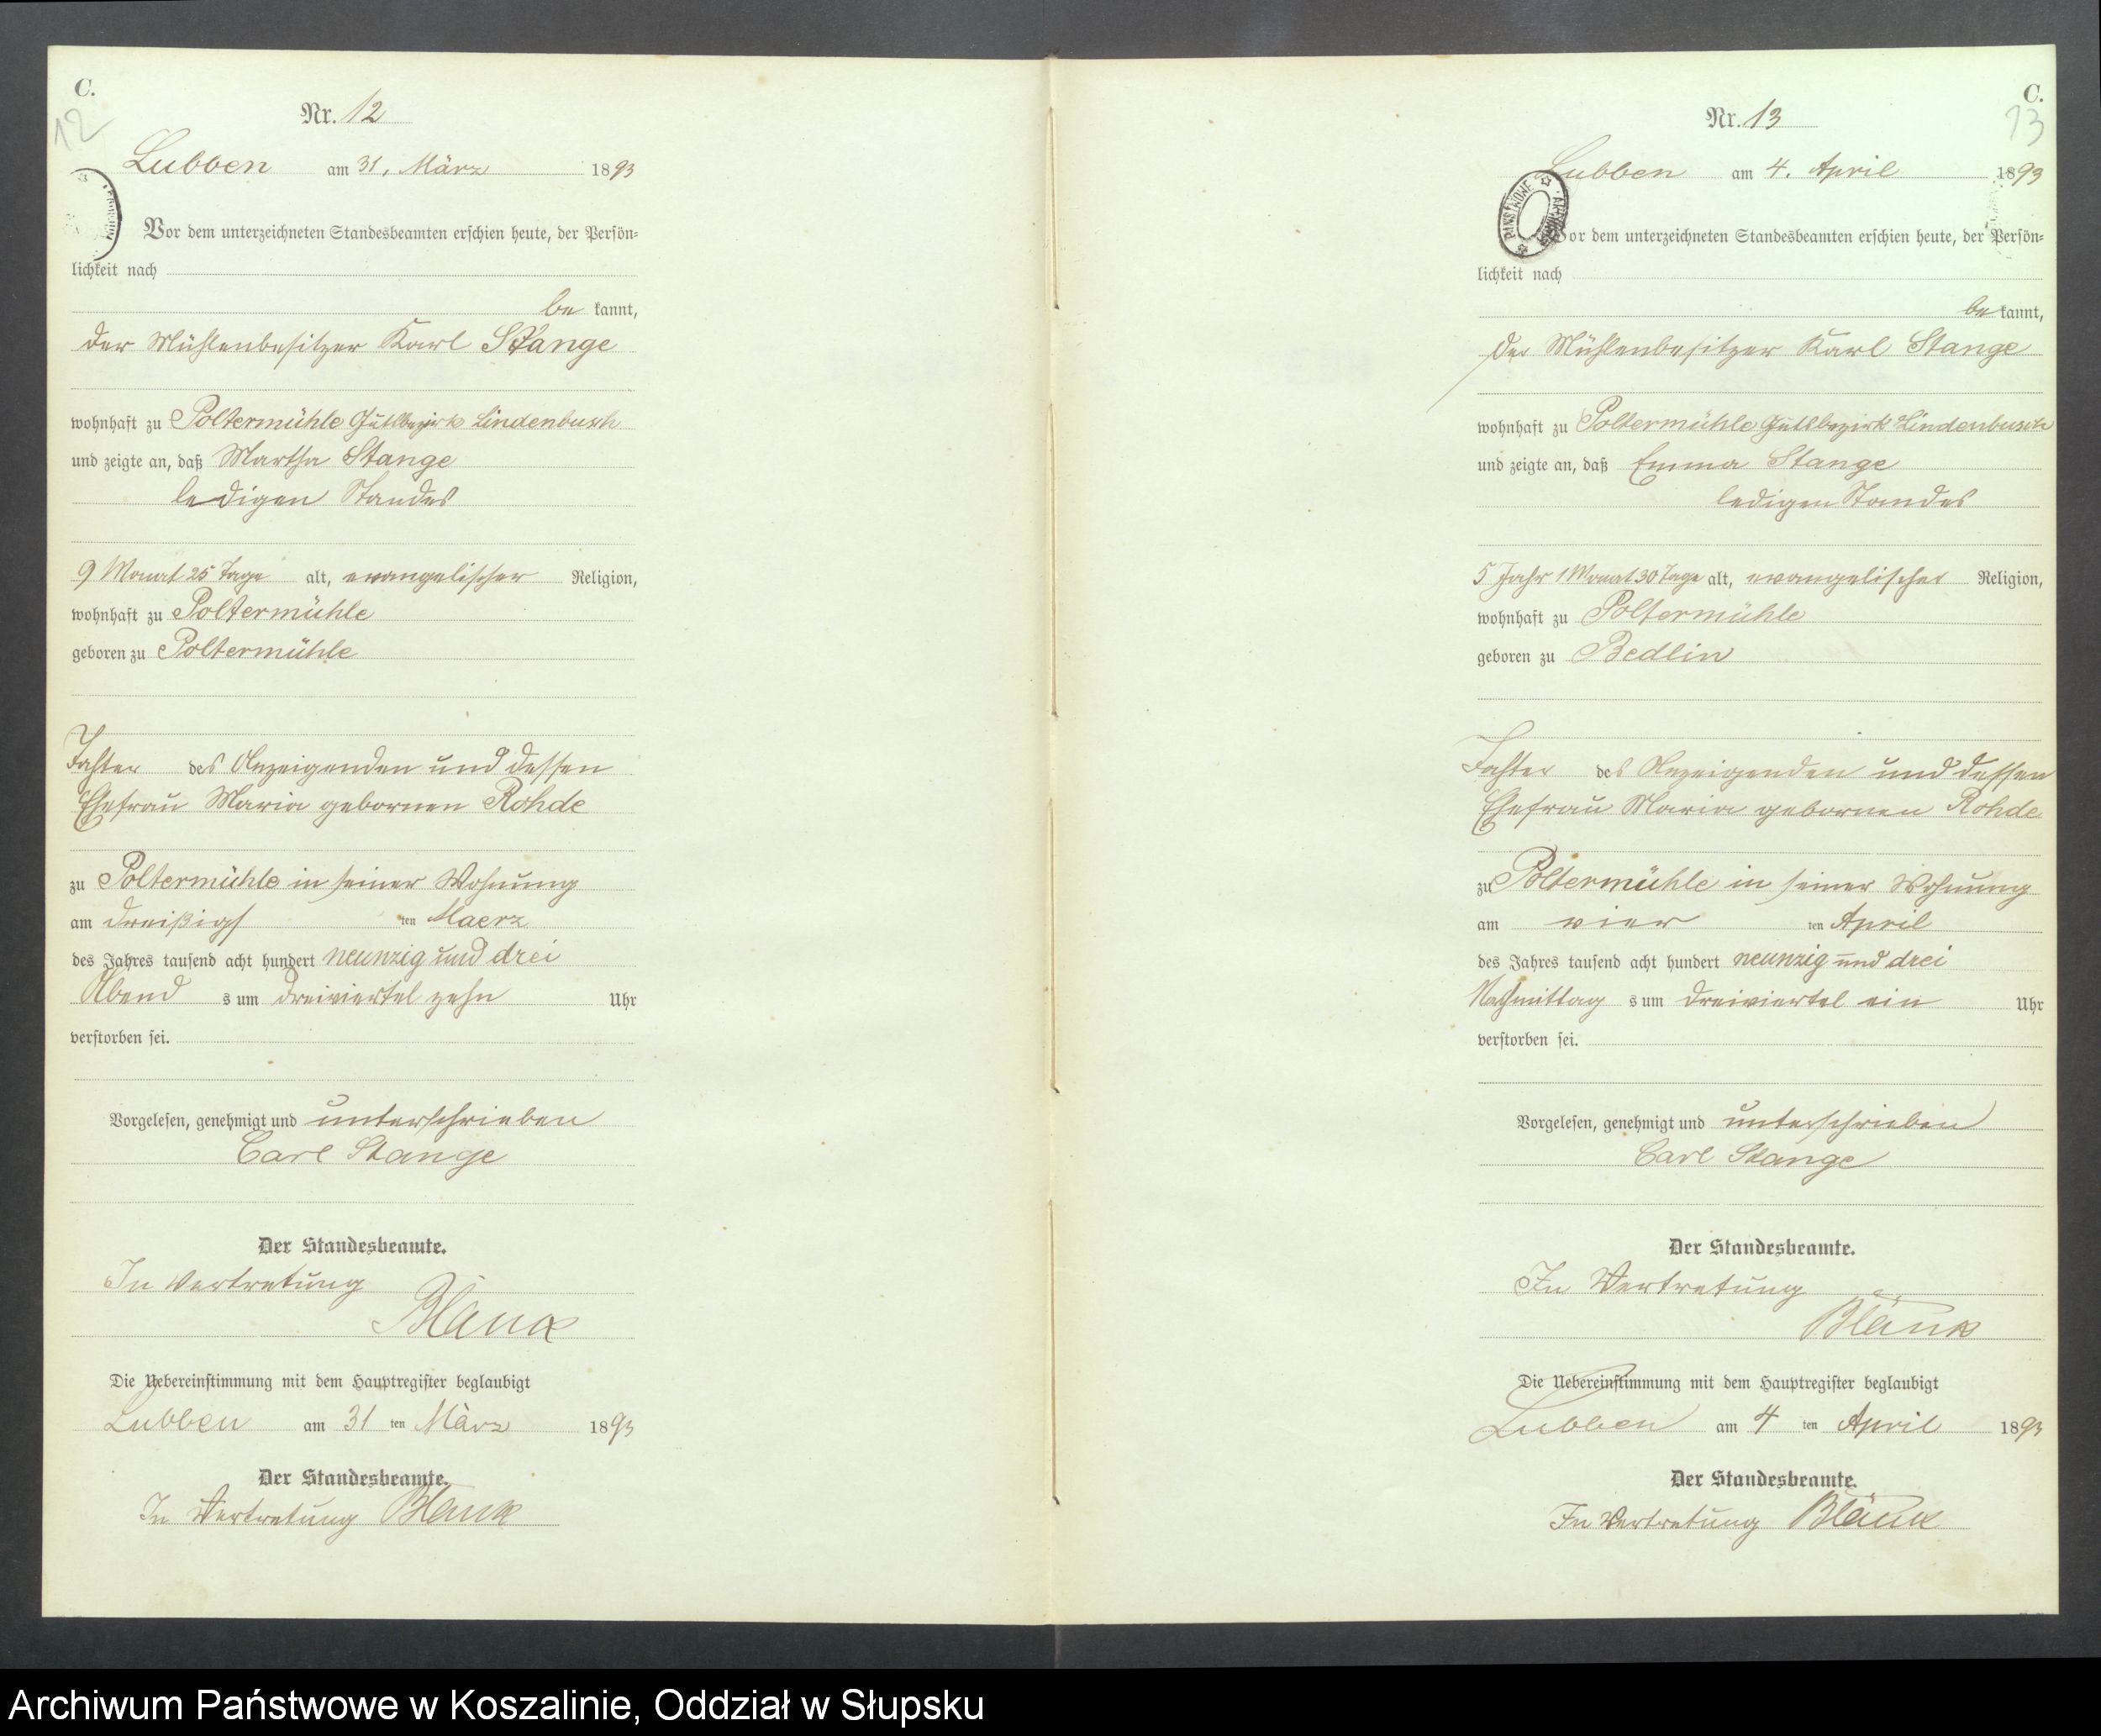 C.
12
Nr. 12
Lubben am 31. März 1893
Vor dem unterzeichneten Standesbeamten erschien heute, der Persön=
lichkeit nach
be kannt,
der Mühlenbesitzer Karl Stange
wohnhaft zu Poltermühle Gutsbezirk Lindenbusch
und zeigte an, daß Martha Stange
ledigen Standes
9 Monat 25 Tage alt, evangelischer Religion,
wohnhaft zu Poltermühle
geboren zu Poltermühle
Tochter des Anzeigenden und dessen
Ehefrau Maria gebornen Rohde
zu Poltermühle in seiner Wohnung
am dreißigs ten Maerz
des Jahres tausend acht hundert neunzig und drei
Abend s um dreiviertel zehn Uhr
verstorben sei.
Vorgelesen, genehmigt und unterschrieben
Carl Stange
Der Standesbeamte.
In Vertretung
Blänk
Die Uebereinstimmung mit dem Hauptregister beglaubigt
Lubben am 31 ten März 1893
Der Standesbeamte.
In Vertretung Blänk
C.
13
Nr. 13
Lubben am 4. April 1893
PAŃSTWOWE ARCHIWUM
Vor dem unterzeichneten Standesbeamten erschien heute, der Persön=
lichkeit nach
be kannt,
der Mühlenbesitzer Karl Stange
wohnhaft zu Poltermühle Gutsbezirk Lindenbusch
und zeigte an, daß Emma Stange
ledigen Standes
5 Jahr 1 Monat 30 Tage alt, evangelischer Religion,
wohnhaft zu Poltermühle
geboren zu Bedlin
Tochter des Anzeigenden und dessen
Ehefrau Maria gebornen Rohde
zu Poltermühle in seiner Wohnung
am vier ten April
des Jahres tausend acht hundert neunzig und drei
Nachmittag s um dreiviertel ein Uhr
verstorben sei.
Vorgelesen, genehmigt und unterschrieben
Carl Stange
Der Standesbeamte.
In Vertretung
Blänk
Die Uebereinstimmung mit dem Hauptregister beglaubigt
Lubben am 4 ten April 1893
Der Standesbeamte.
In Vertretung Blänk
Archiwum Państwowe w Koszalinie, Oddział w Słupsku